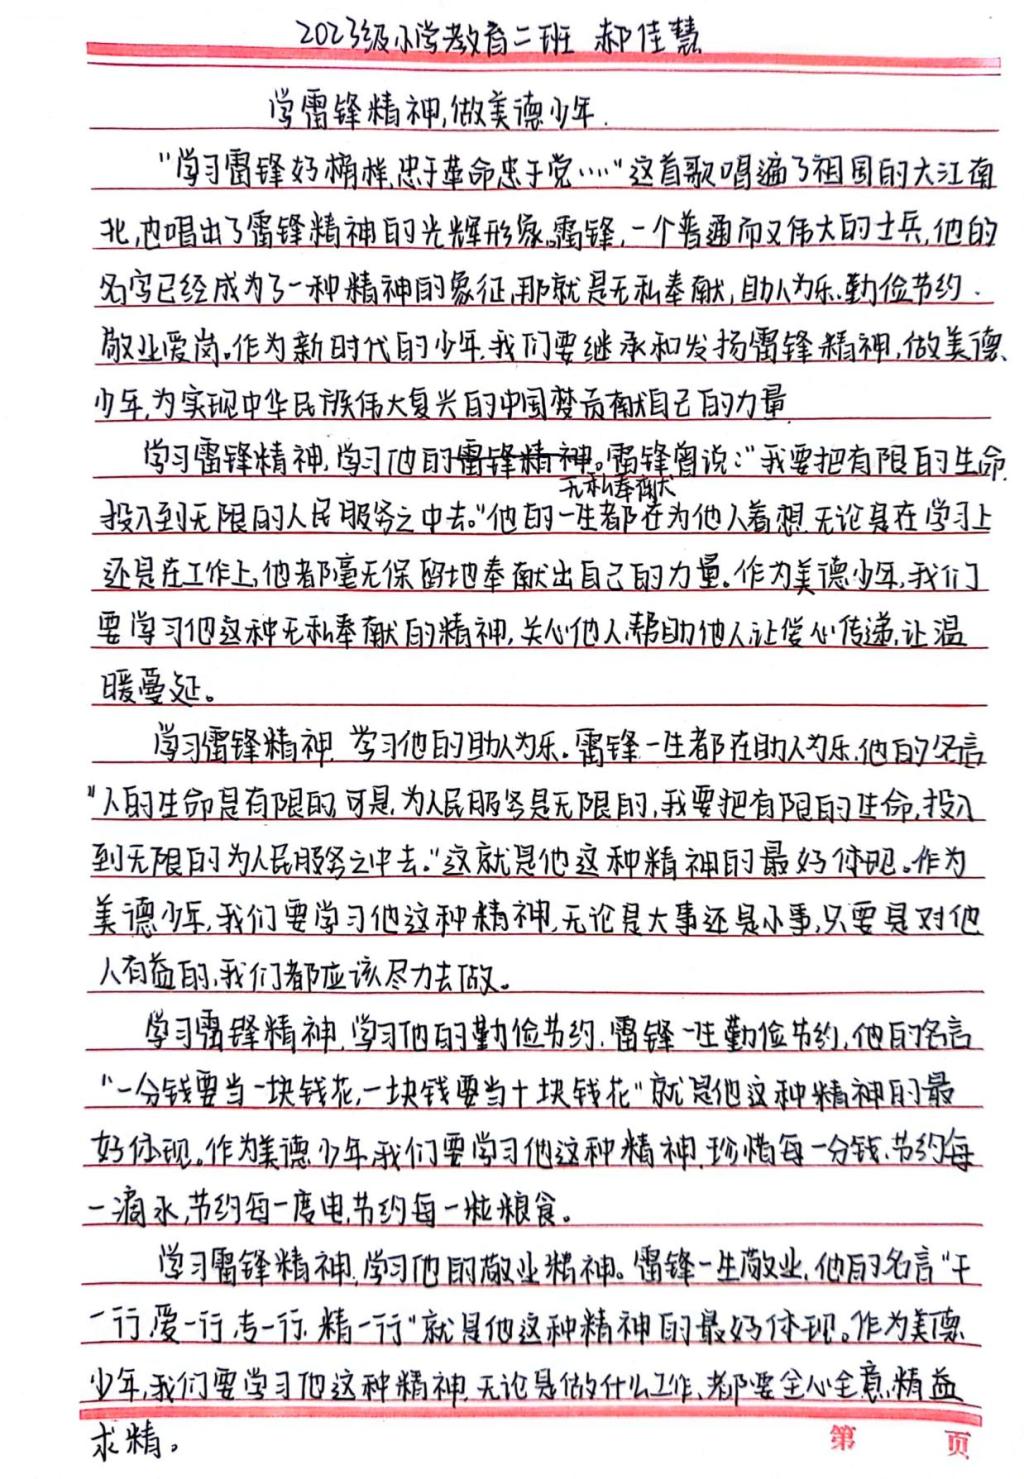 2023级小学教育二班 郝佳慧
学雷锋精神,做美德少年.
“学习雷锋好榜样,忠于革命忠于党……”这首歌唱遍了祖国的大江南
北,也唱出了雷锋精神的光辉形象。雷锋,一个普通而又伟大的士兵,他的
名字已经成为了一种精神的象征,那就是无私奉献,助人为乐、勤俭节约、
敬业爱岗。作为新时代的少年,我们要继承和发扬雷锋精神,做美德
少年,为实现中华民族伟大复兴的中国梦贡献自己的力量
学习雷锋精神,学习他的雷锋精神。雷锋曾说:“我要把有限的生命,
无私奉献
投入到无限的人民服务之中去。”他的一生都在为他人着想,无论是在学习上
还是在工作上,他都毫无保留地奉献出自己的力量。作为美德少年,我们
要学习他这种无私奉献的精神,关心他人,帮助他人,让爱心传递,让温
暖蔓延。
学习雷锋精神,学习他的助人为乐。雷锋一生都在助人为乐,他的名言
“人的生命是有限的,可是,为人民服务是无限的,我要把有限的生命,投入
到无限的为人民服务之中去。”这就是他这种精神的最好体现。作为
美德少年,我们要学习他这种精神,无论是大事还是小事,只要是对他
人有益的,我们都应该尽力去做。
学习雷锋精神,学习他的勤俭节约,雷锋一生勤俭节约,他的名言
“一分钱要当一块钱花,一块钱要当十块钱花”就是他这种精神的最
好体现。作为美德少年,我们要学习他这种精神,珍惜每一分钱,节约每
一滴水,节约每一度电,节约每一粒粮食。
学习雷锋精神,学习他的敬业精神。雷锋一生敬业,他的名言“干
一行,爱一行,专一行,精一行”就是他这种精神的最好体现。作为美德
少年,我们要学习他这种精神,无论是做什么工作,都要全心全意,精益
求精。
第 页